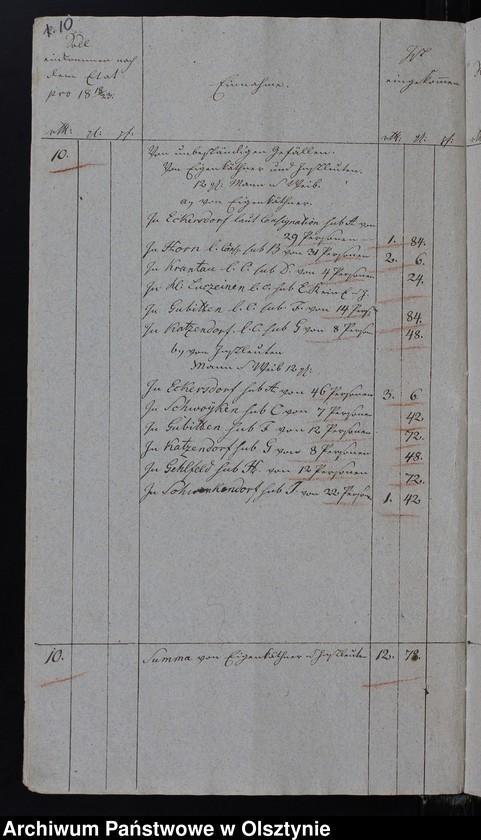 p. 10.
Soll
einkommen nach
dem Etat
pro 18 18/23.
Einnahme.
Ist
eingekommen
rtlr: gl: pf.
rtlr: gl: pf:
10. Von unbeständigen Gefällen.
Von Eigenkäthner und Instleuten.
12 gl: Mann u Weib.
a, von Eigenkäthner.
In Eckersdorf laut Consignation sub A von
29 Personen 1. 84.
In Horn l. Cons. sub B von 31 Personen 2. 6.
In Krantau l. C. sub D. von 4 Personen 24.
In Kl: Luczeinen l. C. sub E. Kein E. u. J.
In Gubitten l. C. sub. F. von 14 Pers. 84.
In Katzendorf. l. C. sub G von 8 Person 48.
b, von Instleuten
Mann u Weib 12 gl:
In Eckersdorf sub A von 46 Personen 3. 6.
In Schwoyken sub C von 7 Personen 42.
In Gubitten sub F von 12 Personen 72.
In Katzendorf sub G von 8 Personen 48.
In Gehlfeld sub H. von 12 Personen 72.
In Schwenkendorf sub J. von 22 Person 1. 42.
10. Summa von Eigenkäthner u Instleute 12. 78.
Archiwum Państwowe w Olsztynie